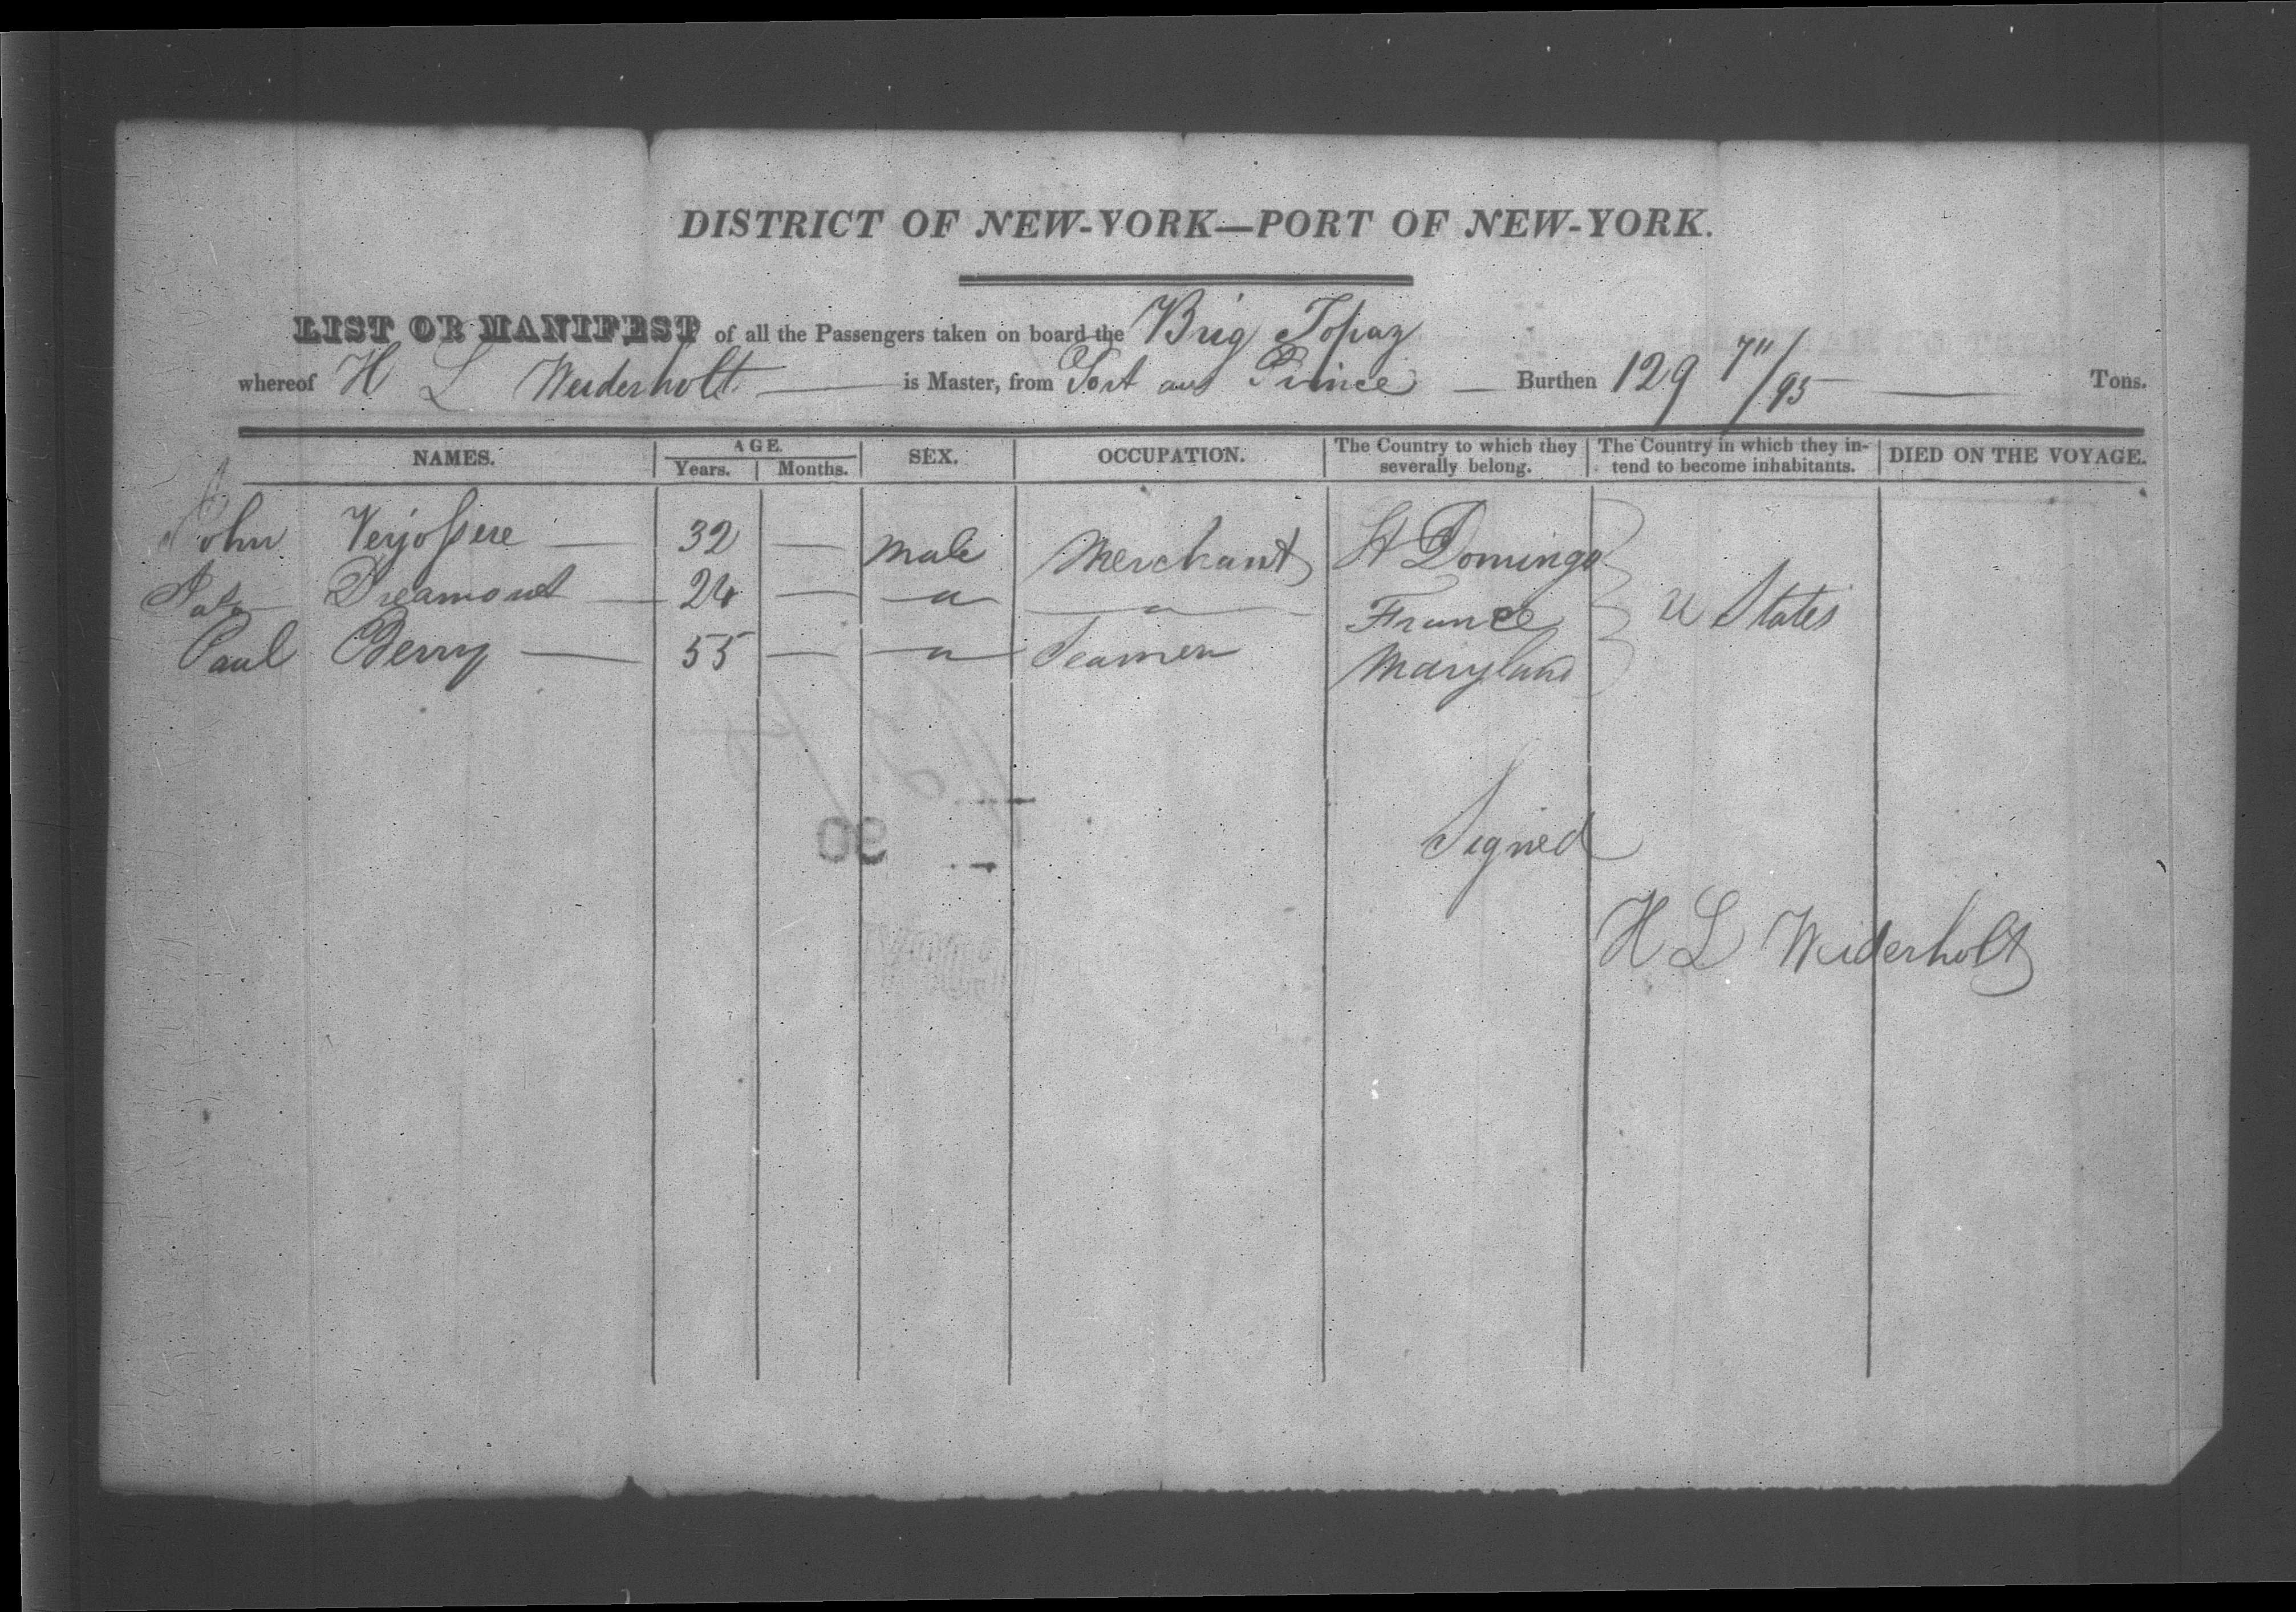 DISTRICT OF NEW-YORK—PORT OF NEW-YORK.
LIST OR MANIFEST of all the Passengers taken on board the Brig Topaz
whereof H L Weiderholt is Master, from Port aus Prince Burthen 129 /95 Tons.
NAMES. AGE. Years. Months. SEX. OCCUPATION. The Country to which they severally belong. The Country in which they intend to become inhabitants. DIED ON THE VOYAGE.
John 32 — Male Merchant St Domingo
24 — " " France U States
Paul Berry — 55 — " Seamen Maryland
90
Signed
H L Widerholt